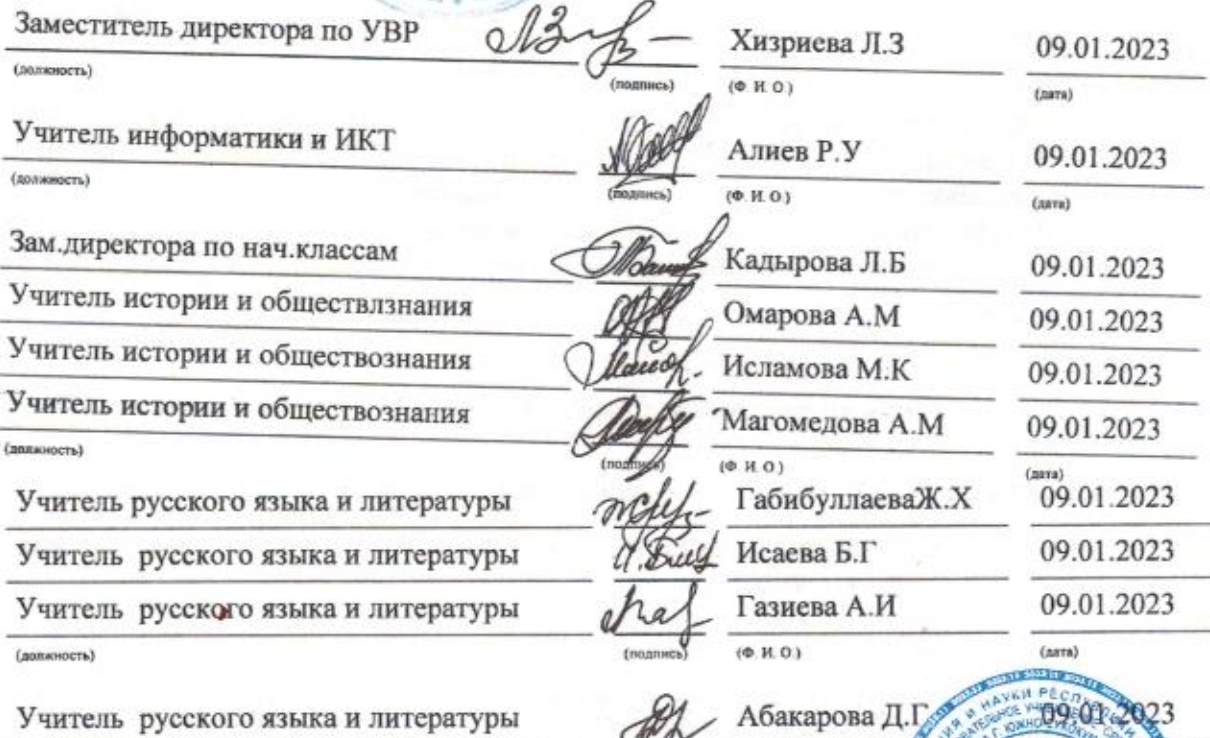 Заместитель директора по УВР Хизриева Л.З 09.01.2023
(должность) (подпись) (Ф. И. О.) (дата)
Учитель информатики и ИКТ Алиев Р.У 09.01.2023
(должность) (подпись) (Ф. И. О.) (дата)
Зам.директора по нач.классам Кадырова Л.Б 09.01.2023
Учитель истории и обществлзнания Омарова А.М 09.01.2023
Учитель истории и обществознания Исламова М.К 09.01.2023
Учитель истории и обществознания Магомедова А.М 09.01.2023
(должность) (подпись) (Ф. И. О.) (дата)
Учитель русского языка и литературы ГабибуллаеваЖ.Х 09.01.2023
Учитель русского языка и литературы Исаева Б.Г 09.01.2023
Учитель русского языка и литературы Газиева А.И 09.01.2023
(должность) (подпись) (Ф. И. О.) (дата)
Учитель русского языка и литературы Абакарова Д.Г 09.01.2023